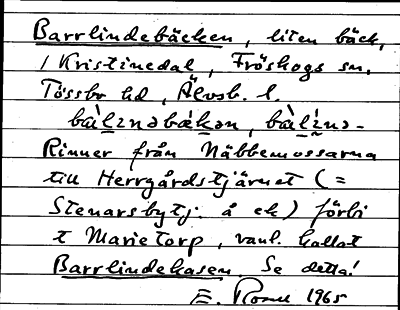 Barrlindebäcken, liten bäck,
i Kristinedal, Fröskogs sn,
Tössbo hd, Älvsb. l.
bàlınəbákən, bàlínə-
Rinner från Näbbemossarna
till Herrgårdstjärnet (=
Stenarsbytj. å ek) förbi
t Marietorp, vanl. kallat
Barrlindekasen. Se detta!
E. 1965